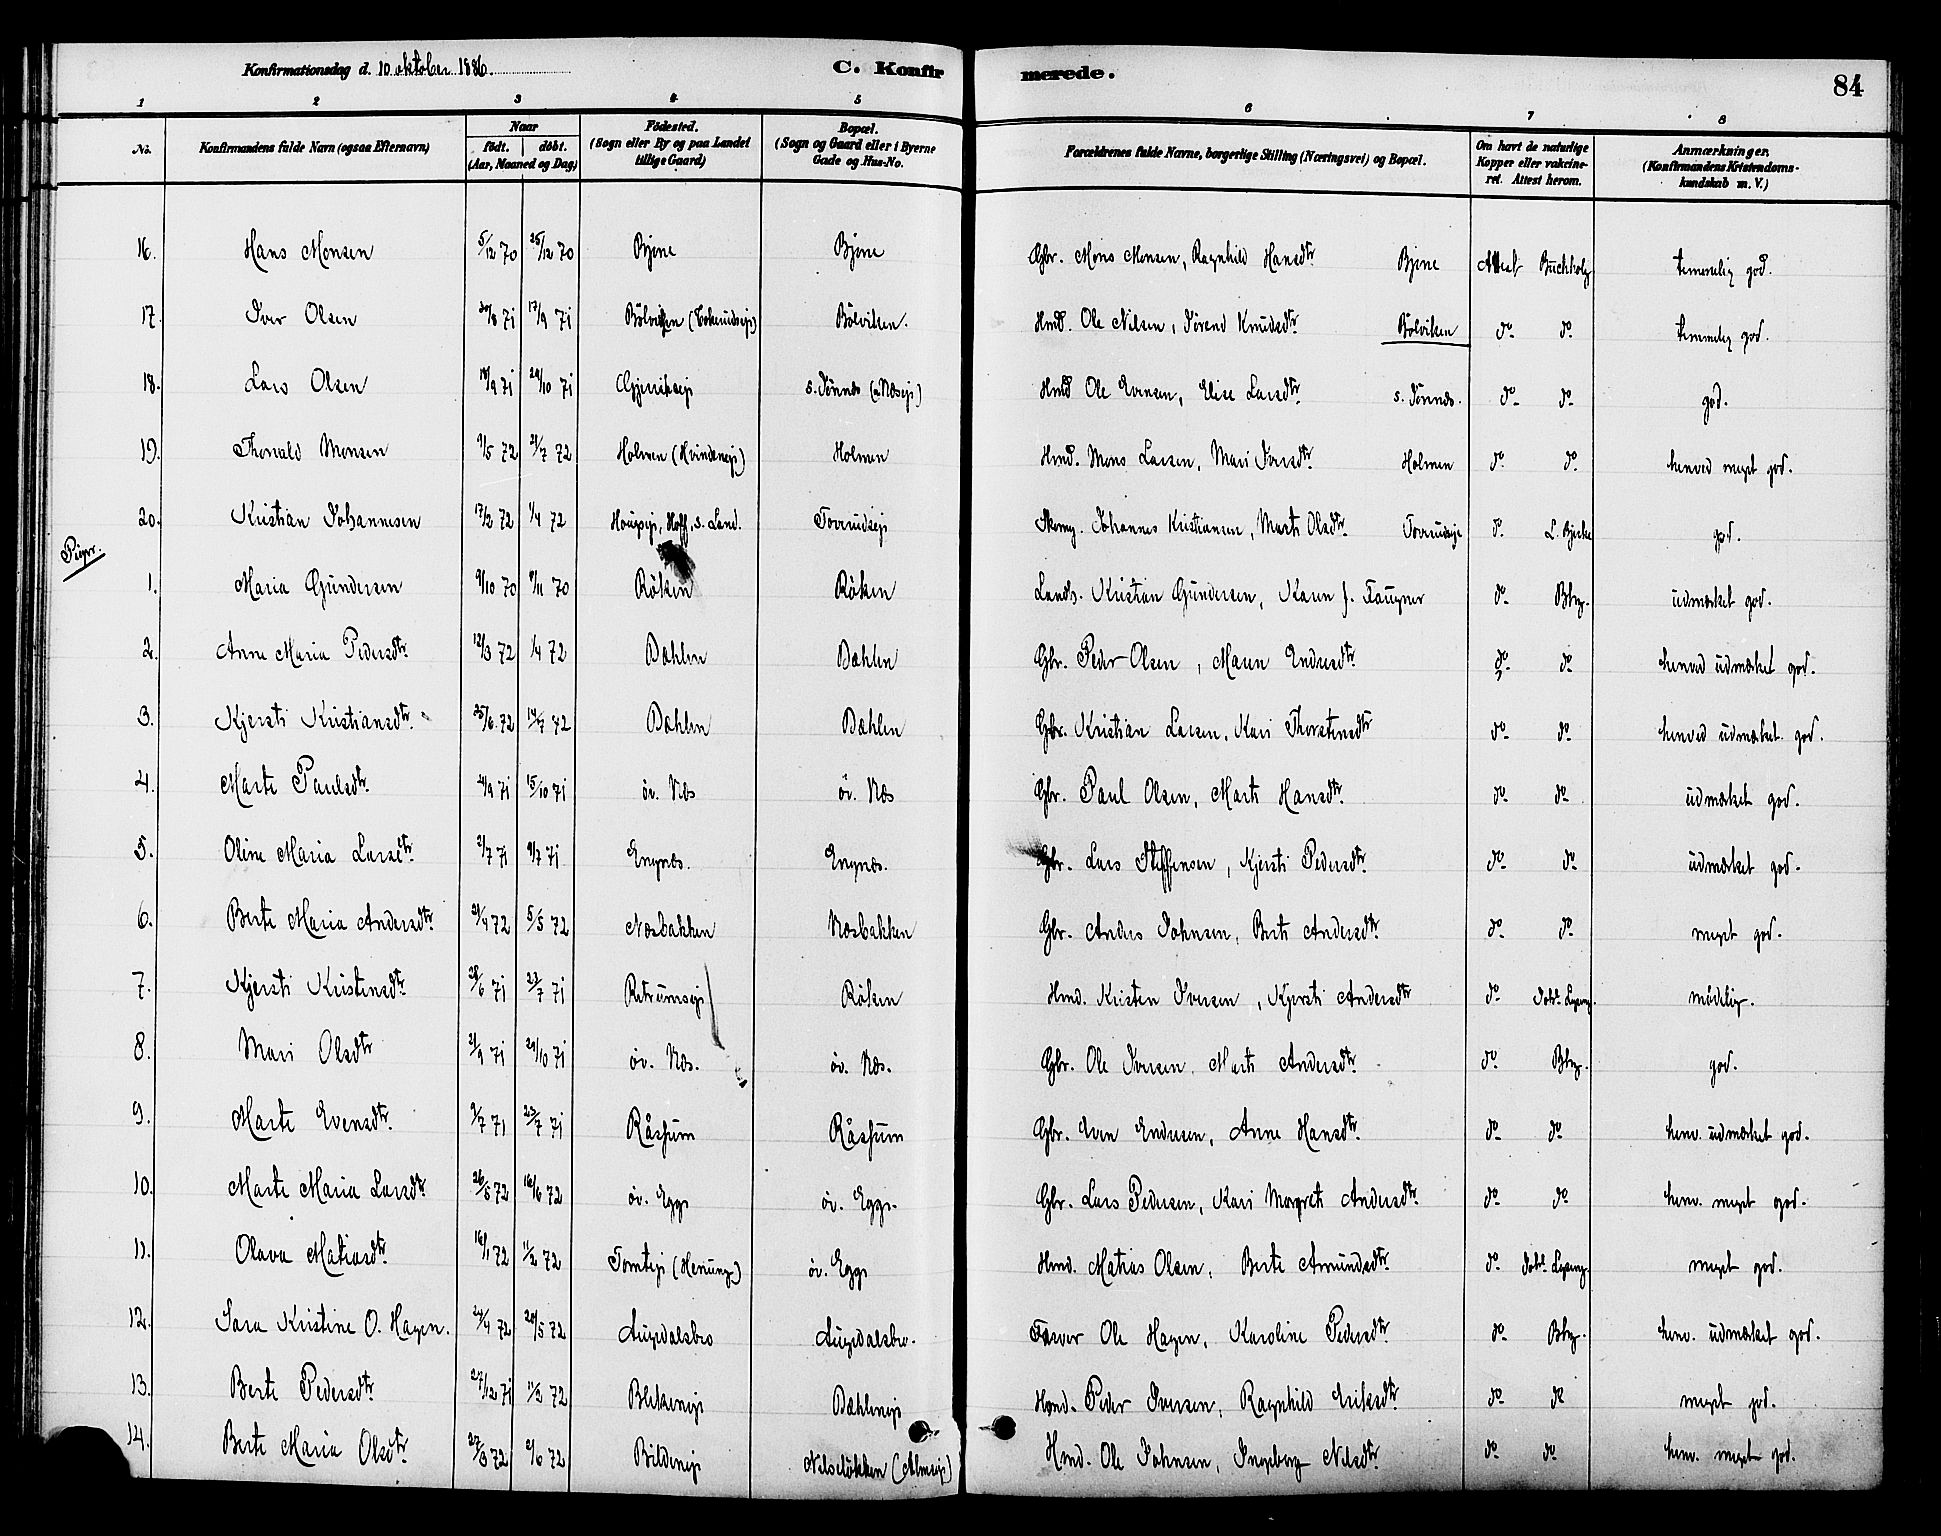 Konfirmationsdag d. 10 oktober 1886. C. Konfirmerede. 84
1 2 3 4 5 6 7 8
No. Konfirmandens fulde Navn (ogsaa Efternavn) Naar födt. döbt. (Aar, Maaned og Dag) Födested. (Sogn eller By og paa Landet tillige Gaard) Bopæl. (Sogn og Gaard eller i Byerne Gade og Hus-No. Forældrenes fulde Navne, borgerlige Stilling (Næringsvei) og Bopæl. Om havt de naturlige Kopper eller vakcineret. Attest herom. Anmærkninger. (Konfirmandens Kristendomskundskab m. V.)
16. Hans Monsen 5/12 70 25/12 70 Bjone Bjone Gbr. Mons Monsen, Ragnhild Hansdtr Bjone Attest Buchholz temmelig god.
17. Iver Olsen 30/8 71 17/9 71 Bölviken Bölviken. Hmd. Ole Nilsen, Jörend Knudsdtr Bölviken do do temmelig god.
18. Lars Olsen 18/9 71 29/10 71 s. Tönnes Hmd Ole Evensen, Elise Larsdtr s. Tönnes. do do god.
19. Thorvald Monsen 9/5 72 21/7 72 Holmen Holmen Hmd. Mons Larsen, Mari Iversdtr Holmen do do henved meget god.
20. Kristian Johannesen 17/2 72 1/4 72 Hougseje, Hoff, s. Land. Torrudseje Skomg. Johannes Kristiansen, Marte Olsdtr Torrudseje do L. Bjerke god.
Piger.
1. Maria Gundersen 9/10 70 9/11 70 Röken Röken Landh. Kristian Gundersen, Karen f. Faugner do Bhz. udmærket god.
2. Anne Maria Pedersdtr 12/3 72 1/4 72 Dæhlen Dæhlen Gbr. Peder Olsen, Maren Endresdtr do do henved udmærket god.
3. Kjersti Kristiansdtr 25/6 72 14/7 72 Dæhlen Dæhlen Gbr. Kristian Larsen, Kari Thorstensdtr do do henved udmærket god.
4. Marte Paulsdtr 4/9 71 15/10 71 öv. Næs öv. Næs Gbr. Paul Olsen, Marte Hansdtr do do udmærket god.
5. Oline Maria Larsdtr 2/7 71 9/7 71 Engnæs. Engnæs. Gbr. Lars Steffensen, Kjersti Pedersdtr do do udmærket god.
6. Berte Maria Andersdtr 21/4 72 5/5 72 Næsbakken Næsbakken Gbr. Anders Johnsen, Berte Andersdtr do do meget god.
7. Kjersti Kristensdtr 28/6 71 23/7 71 Retrumseje Röken Hmd. Kristen Iversen, Kjersti Andersdtr do mådelig.
8. Mari Olsdtr 21/9 71 29/10 71 öv. Næs. öv. Næs. Gbr. Ole Iversen, Marte Andersdtr do Bhz. god.
9. Marte Evensdtr 9/7 71 23/7 71 Råssum Råssum Gbr. Even Endresen, Anne Hansdtr do do henv. udmærket god.
10. Marte Maria Larsdtr 26/5 72 16/6 72 öv. Egge öv. Egge. Gbr. Lars Pedersen, Kari Margrete Andersdtr do do henv. meget god.
11. Olava Matiasdtr 16/1 72 11/2 72 Tomteje öv. Egge Hmd. Matias Olsen, Berte Amundsdtr do meget god.
12. Sara Kristine O. Hagen. 24/4 72 20/5 72 Augedalsbro Augedalsbro. Farver Ole Hagen, Karoline Pedersdtr do Bhz. henv. udmærket god.
13. Berte Pedersdtr 27/12 71 11/2 72 Blikeneje Dæhleneje Hmd. Peder Iversen, Ragnhild Eriksdtr do do meget god.
14. Berte Maria Olsdtr 27/3 72 2/6 72 Bildeneje Nilselökken (Almseje) Hmd. Ole Johnsen, Ingeborg Nilsdtr do do henv. meget god.